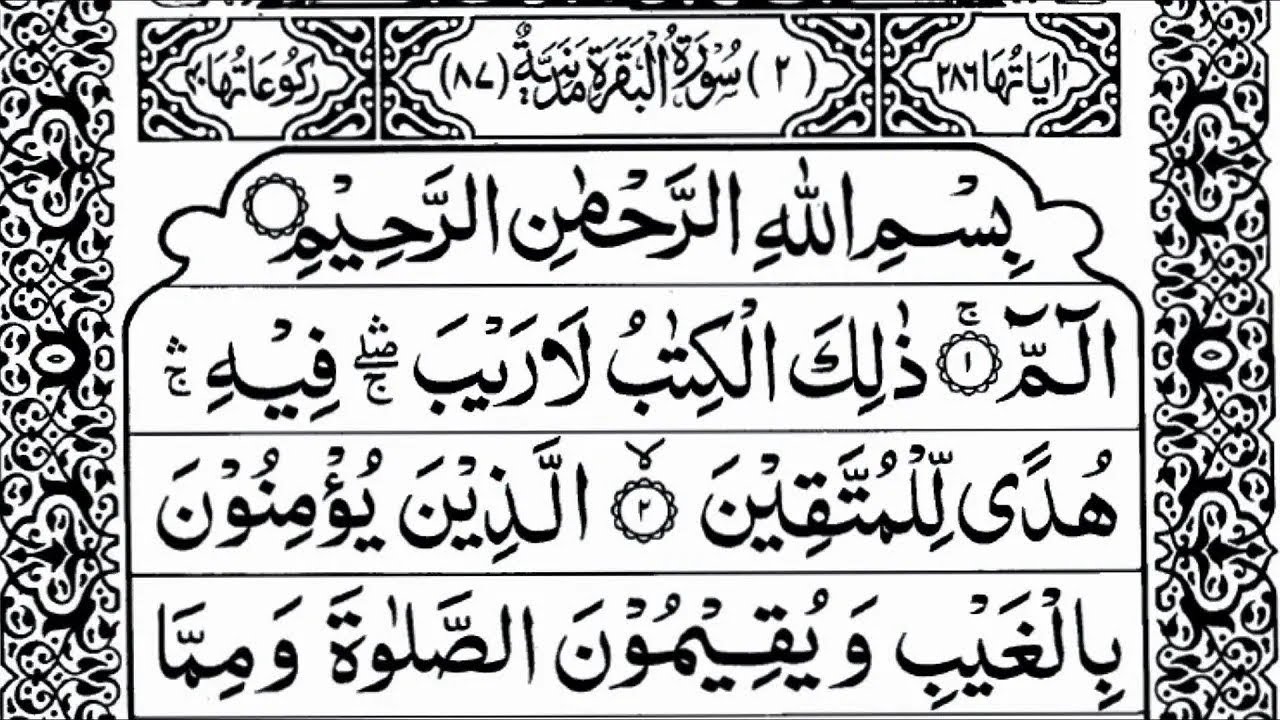 اٰيَاتُهَا ٢٨٦ (٢) سُوْرَةُ الْبَقَرَةِ مَدَنِيَّةٌ (٨٧) رُكُوْعَاتُهَا ٤٠
بِسْمِ اللّٰهِ الرَّحْمٰنِ الرَّحِيْمِ
الٓمّٓ ۚ ١ ذٰلِكَ الْكِتٰبُ لَا رَيْبَ ۛۖۚ فِيْهِ ۛۚ
هُدًى لِّلْمُتَّقِيْنَ ۙ ٢ الَّذِيْنَ يُؤْمِنُوْنَ
بِالْغَيْبِ وَ يُقِيْمُوْنَ الصَّلٰوةَ وَ مِمَّا